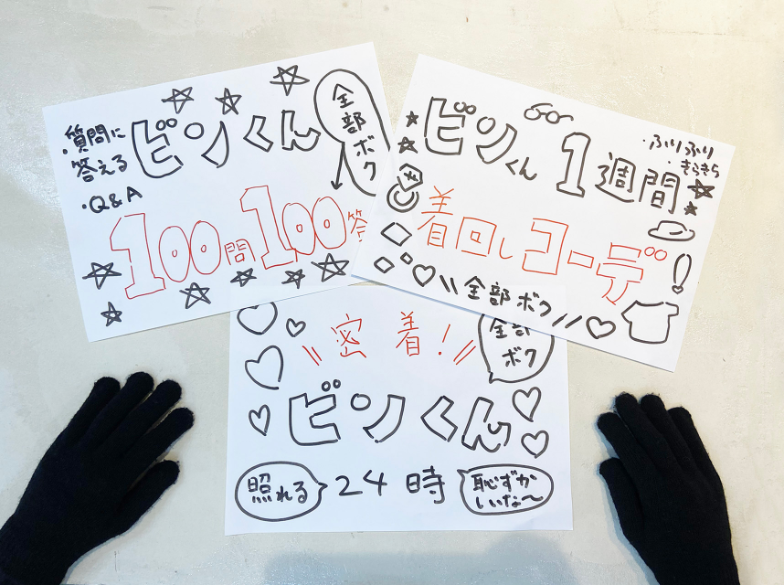 ・質問に
答える
・Q&A
ビンくん
全部ボク
100問100答
ビンくん1週間
・ふりふり
・きらきら
着回しコーデ
\\全部ボク//
\\密着!//
全部ボク
ビンくん
照れる
24時
恥ずか
しいな〜